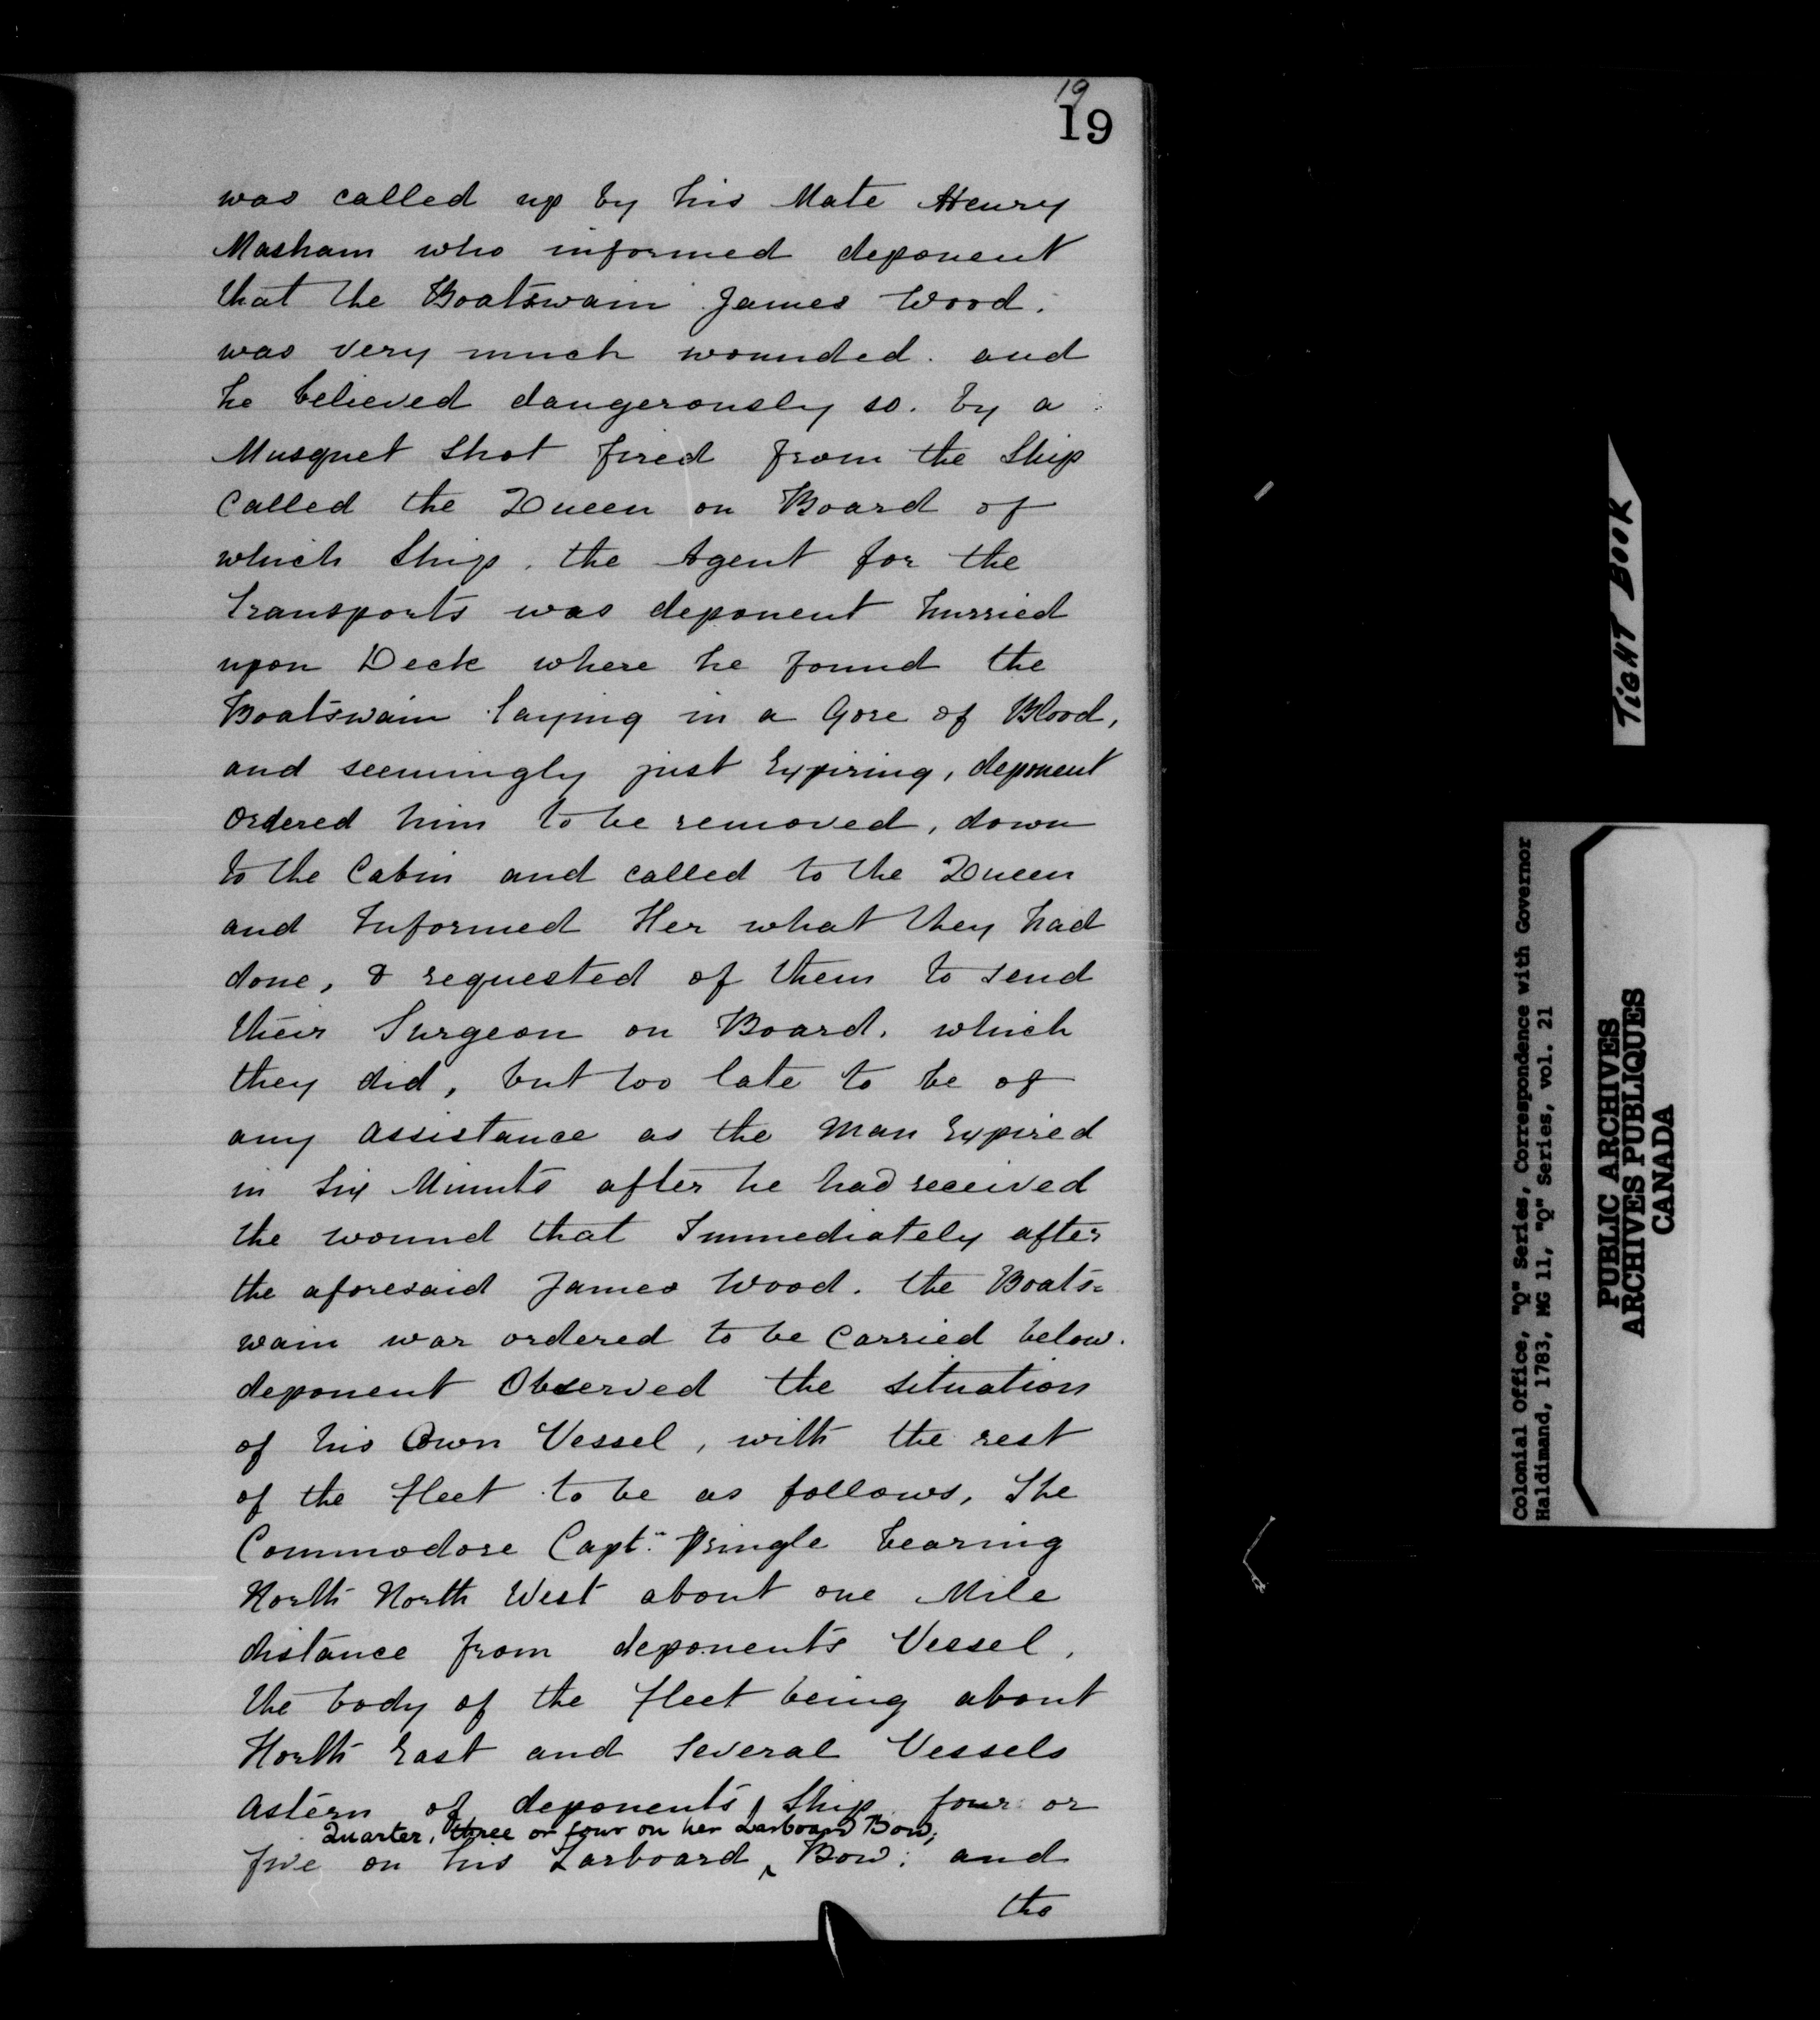 19
19
was called up by his Mate Henry
Masham who informed deponent
that the Boatswain James Wood.
was very much wounded. and
he believed dangerously so. by a
Musquet Shot fired from the Ship
Called the Queen on Board of
which Ship, the Agent for the
Transports was deponent hurried
upon Deck where he found the
Boatswain laying in a Gore of Blood,
and seemingly just Expiring, deponent
Ordered him to be removed, down
to the Cabin and called to the Queen
and Informed Her what they had
done, & requested of them to send
their Surgeon on Board, which
they did, but too late to be of
any assistance as the Man Expired
in Six Minuts after he had received
the wound that Immediately after
the aforesaid James Wood. the Boats=
wain was ordered to be Carried below.
deponent Observed the situation
of his Own Vessel, with the rest
of the fleet to be as follows, The
Commodore Captn. Pringle bearing
North North West about one Mile
distance from deponents Vessel,
the body of the fleet being about
North East and Several Vessels
Astern of deponents Ship four or
Quarter, three or four on her Larboard Bow;
five on his Larboard ‸ Bow; and
the
TIGHT BOOK
Colonial Office, "Q" Series, Correspondence with Governor
Haldimand, 1783, MG 11, "Q" Series, vol. 21
PUBLIC ARCHIVES
ARCHIVES PUBLIQUES
CANADA